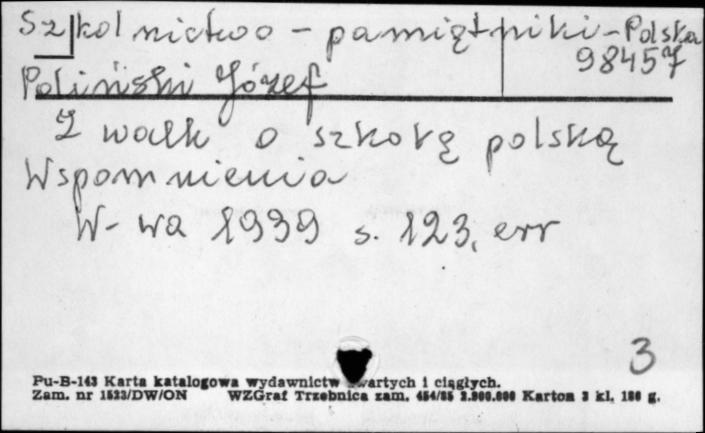 Szkolnictwo - pamiętniki - Polska
98457
Poliński Józef
Z walk o szkołę polską
Wspomnienia
W-wa 1939 s. 123, err
3
Pu-B-143 Karta katalogowa wydawnictw zwartych i ciągłych.
Zam. nr 1523/DW/ON WZGraf Trzebnica zam. 454/85 2.900.000 Karton 3 kl. 180 g.